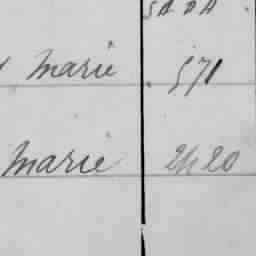 Marie 571
Marie 2420